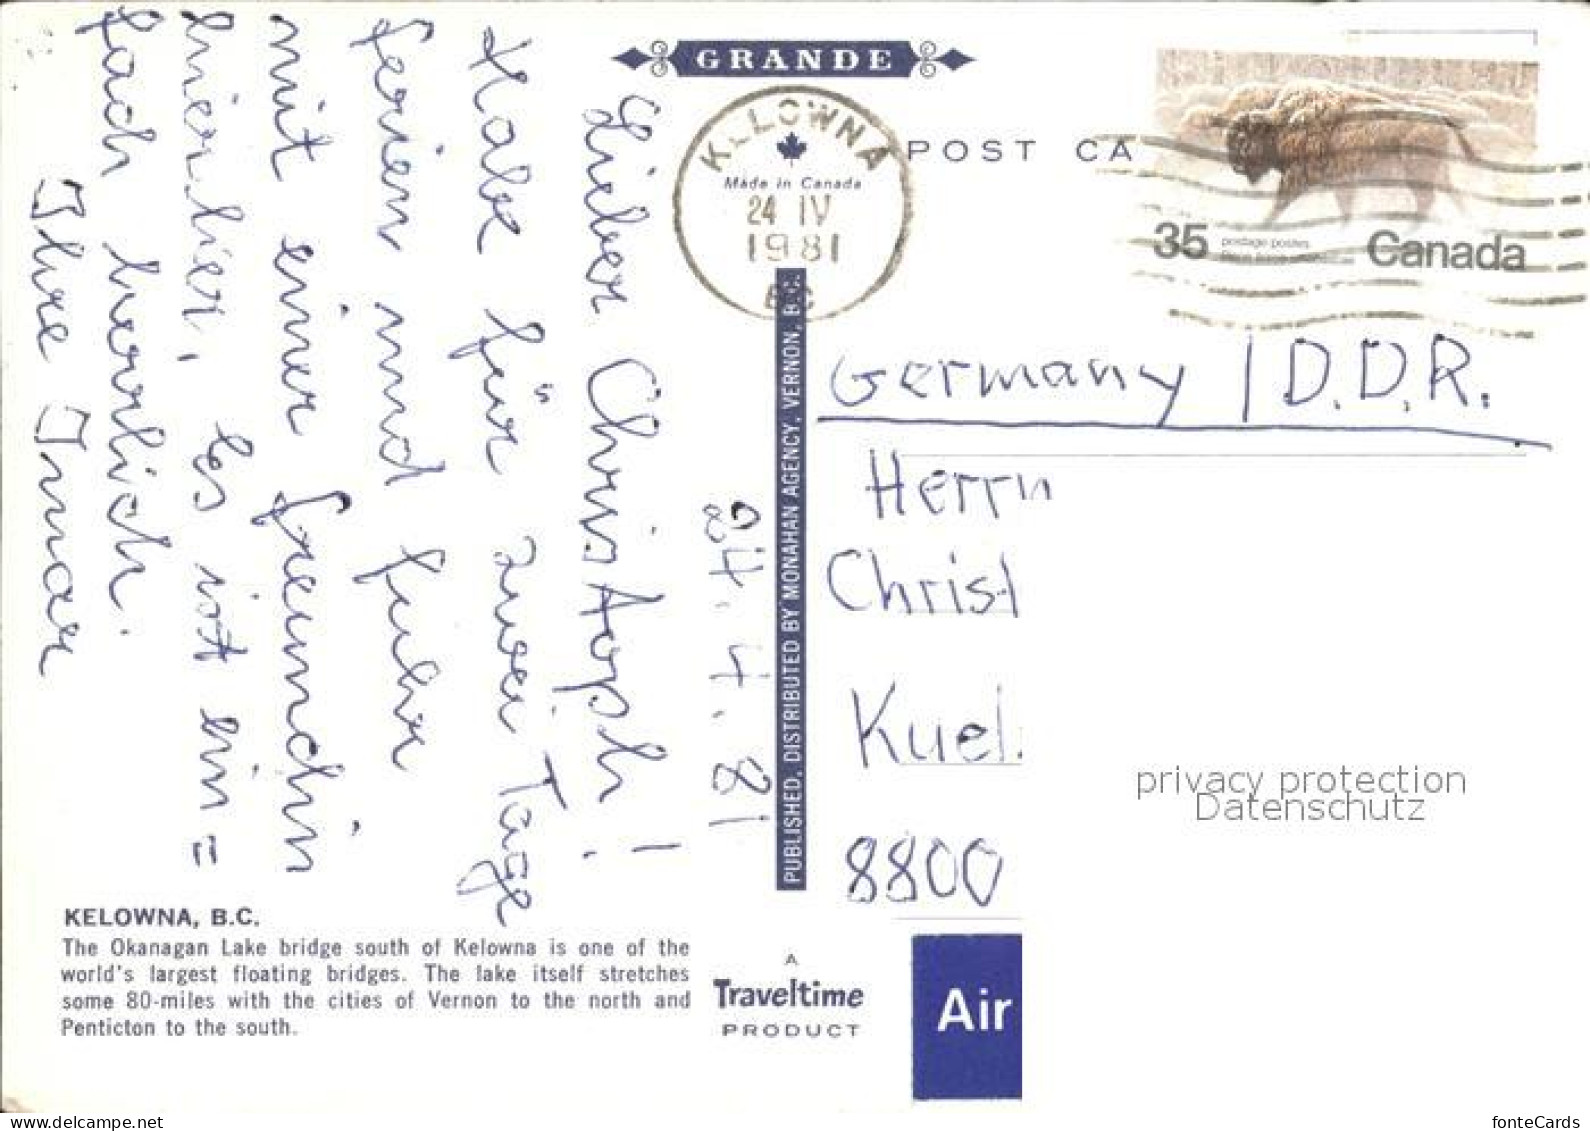 GRANDE
POST CA
KELOWNA
Made in Canada
24 IV
1981
B C
35 postage postes
Canada
24.4.81
Lieber Christoph!
Habe für zwei Tage
Ferien und fuhr
mit einer Freundin
hierhier, es ist ein=
fach herrlich.
Ihre Irmar
PUBLISHED, DISTRIBUTED BY MONAHAN AGENCY, VERNON, B.C.
Germany / D.D.R.
Herrn
Christ
Kuel
8800
privacy protection
Datenschutz
KELOWNA, B.C.
The Okanagan Lake bridge south of Kelowna is one of the
world's largest floating bridges. The lake itself stretches
some 80-miles with the cities of Vernon to the north and
Penticton to the south.
A
Traveltime
PRODUCT
Air
www.delcampe.net
fonteCards